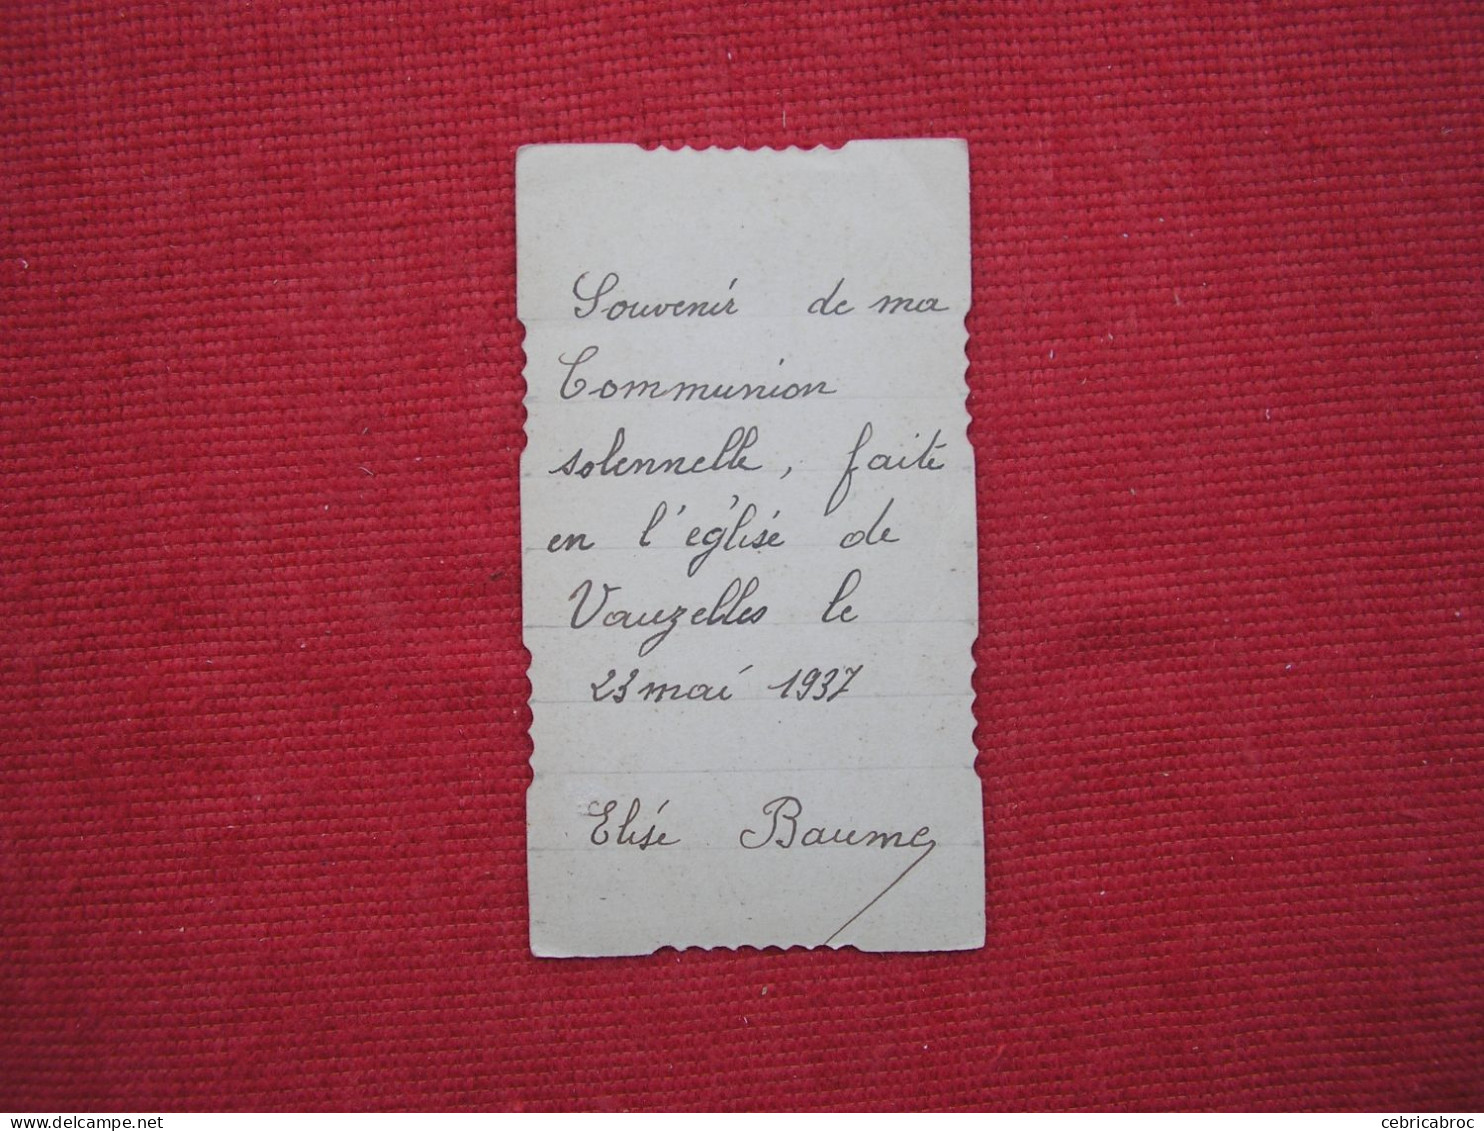 Souvenir de ma
Communion
solennelle, faite
en l'église de
Vauzelles le
23 mai 1937
Elise Baume
delcampe.net
cebricabroc